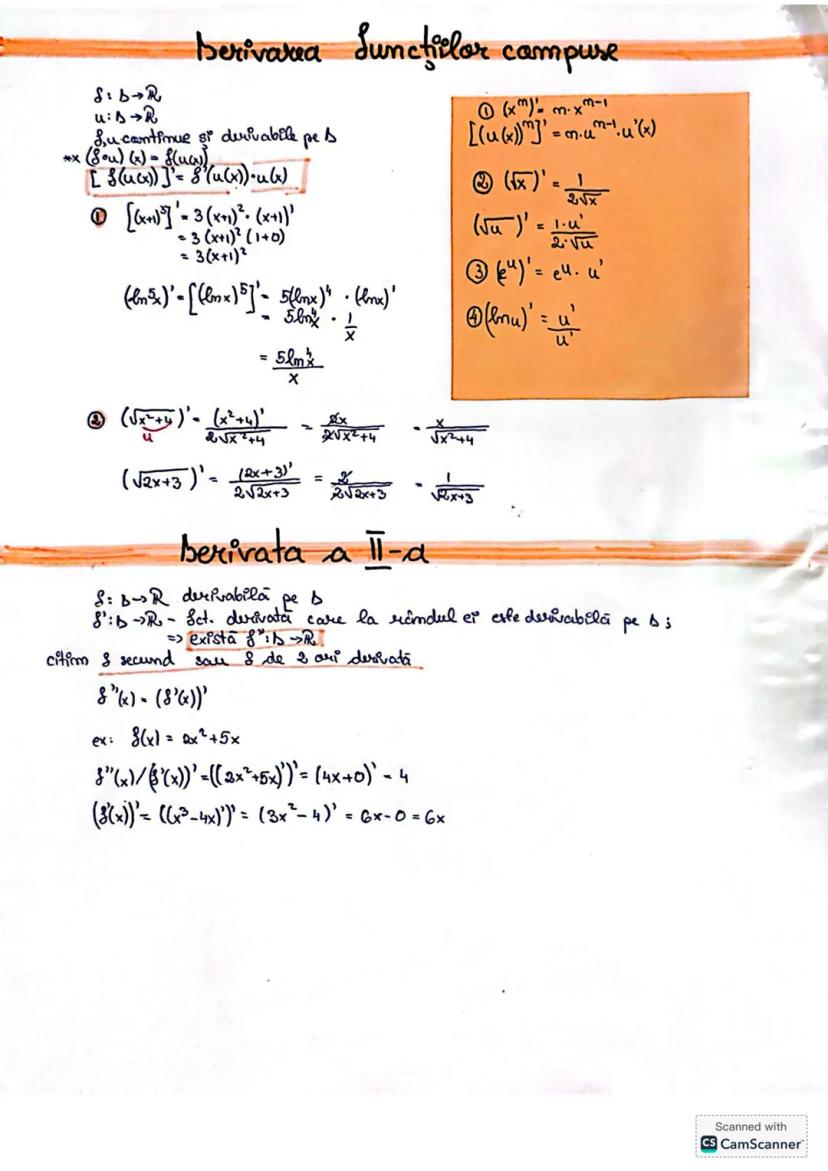 Derivarea funcțiilor compuse
f: D→R
u: D→R
f,u continue și derivabile pe D
** (f∘u)(x) = f(u(x))
[f(u(x))]' = f'(u(x))·u(x)
① [(x+1)³]' = 3(x+1)²·(x+1)'
= 3(x+1)²(1+0)
= 3(x+1)²
(ln⁵x)' = [(ln x)⁵]' = 5(lnx)⁴ · (lnx)'
= 5ln⁴x · 1/x
= 5ln⁴x/x
① (xⁿ)' = n·xⁿ⁻¹
[(u(x))ⁿ]' = n·uⁿ⁻¹·u'(x)
② (√x)' = 1/2√x
(√u)' = 1·u'/2·√u
③ (eᵘ)' = eᵘ · u'
④ (lnu)' = u'/u'
② (√x²+4)' = (x²+4)'/2√x²+4 = 2x/2√x²+4 = x/√x²+4
u
(√2x+3)' = (2x+3)'/2√2x+3 = 2/2√2x+3 = 1/√2x+3
Derivata a II-a
f: D→R derivabilă pe D
f': D→R - fct. derivată care la rândul ei este derivabilă pe D;
=> există f'': D→R
citim f secund sau f de 2 ori derivată
f''(x) = (f'(x))'
ex: f(x) = 2x²+5x
f''(x)/(f'(x))' = ((2x²+5x)')' = (4x+0)' = 4
(f'(x))' = ((x³-4x)')' = (3x²-4)' = 6x-0 = 6x
Scanned with
CS CamScanner